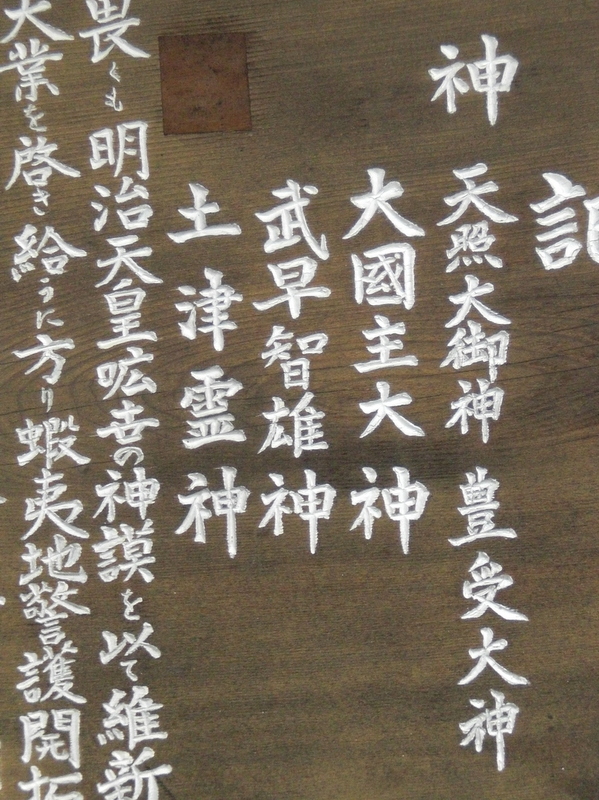 神
天照大御神 豊受大神
大國主大神
武早智雄神
土津霊神
畏くも明治天皇宏㐂の神謨を以て維新
大業を啓き給うに方り蝦夷地警護開拓